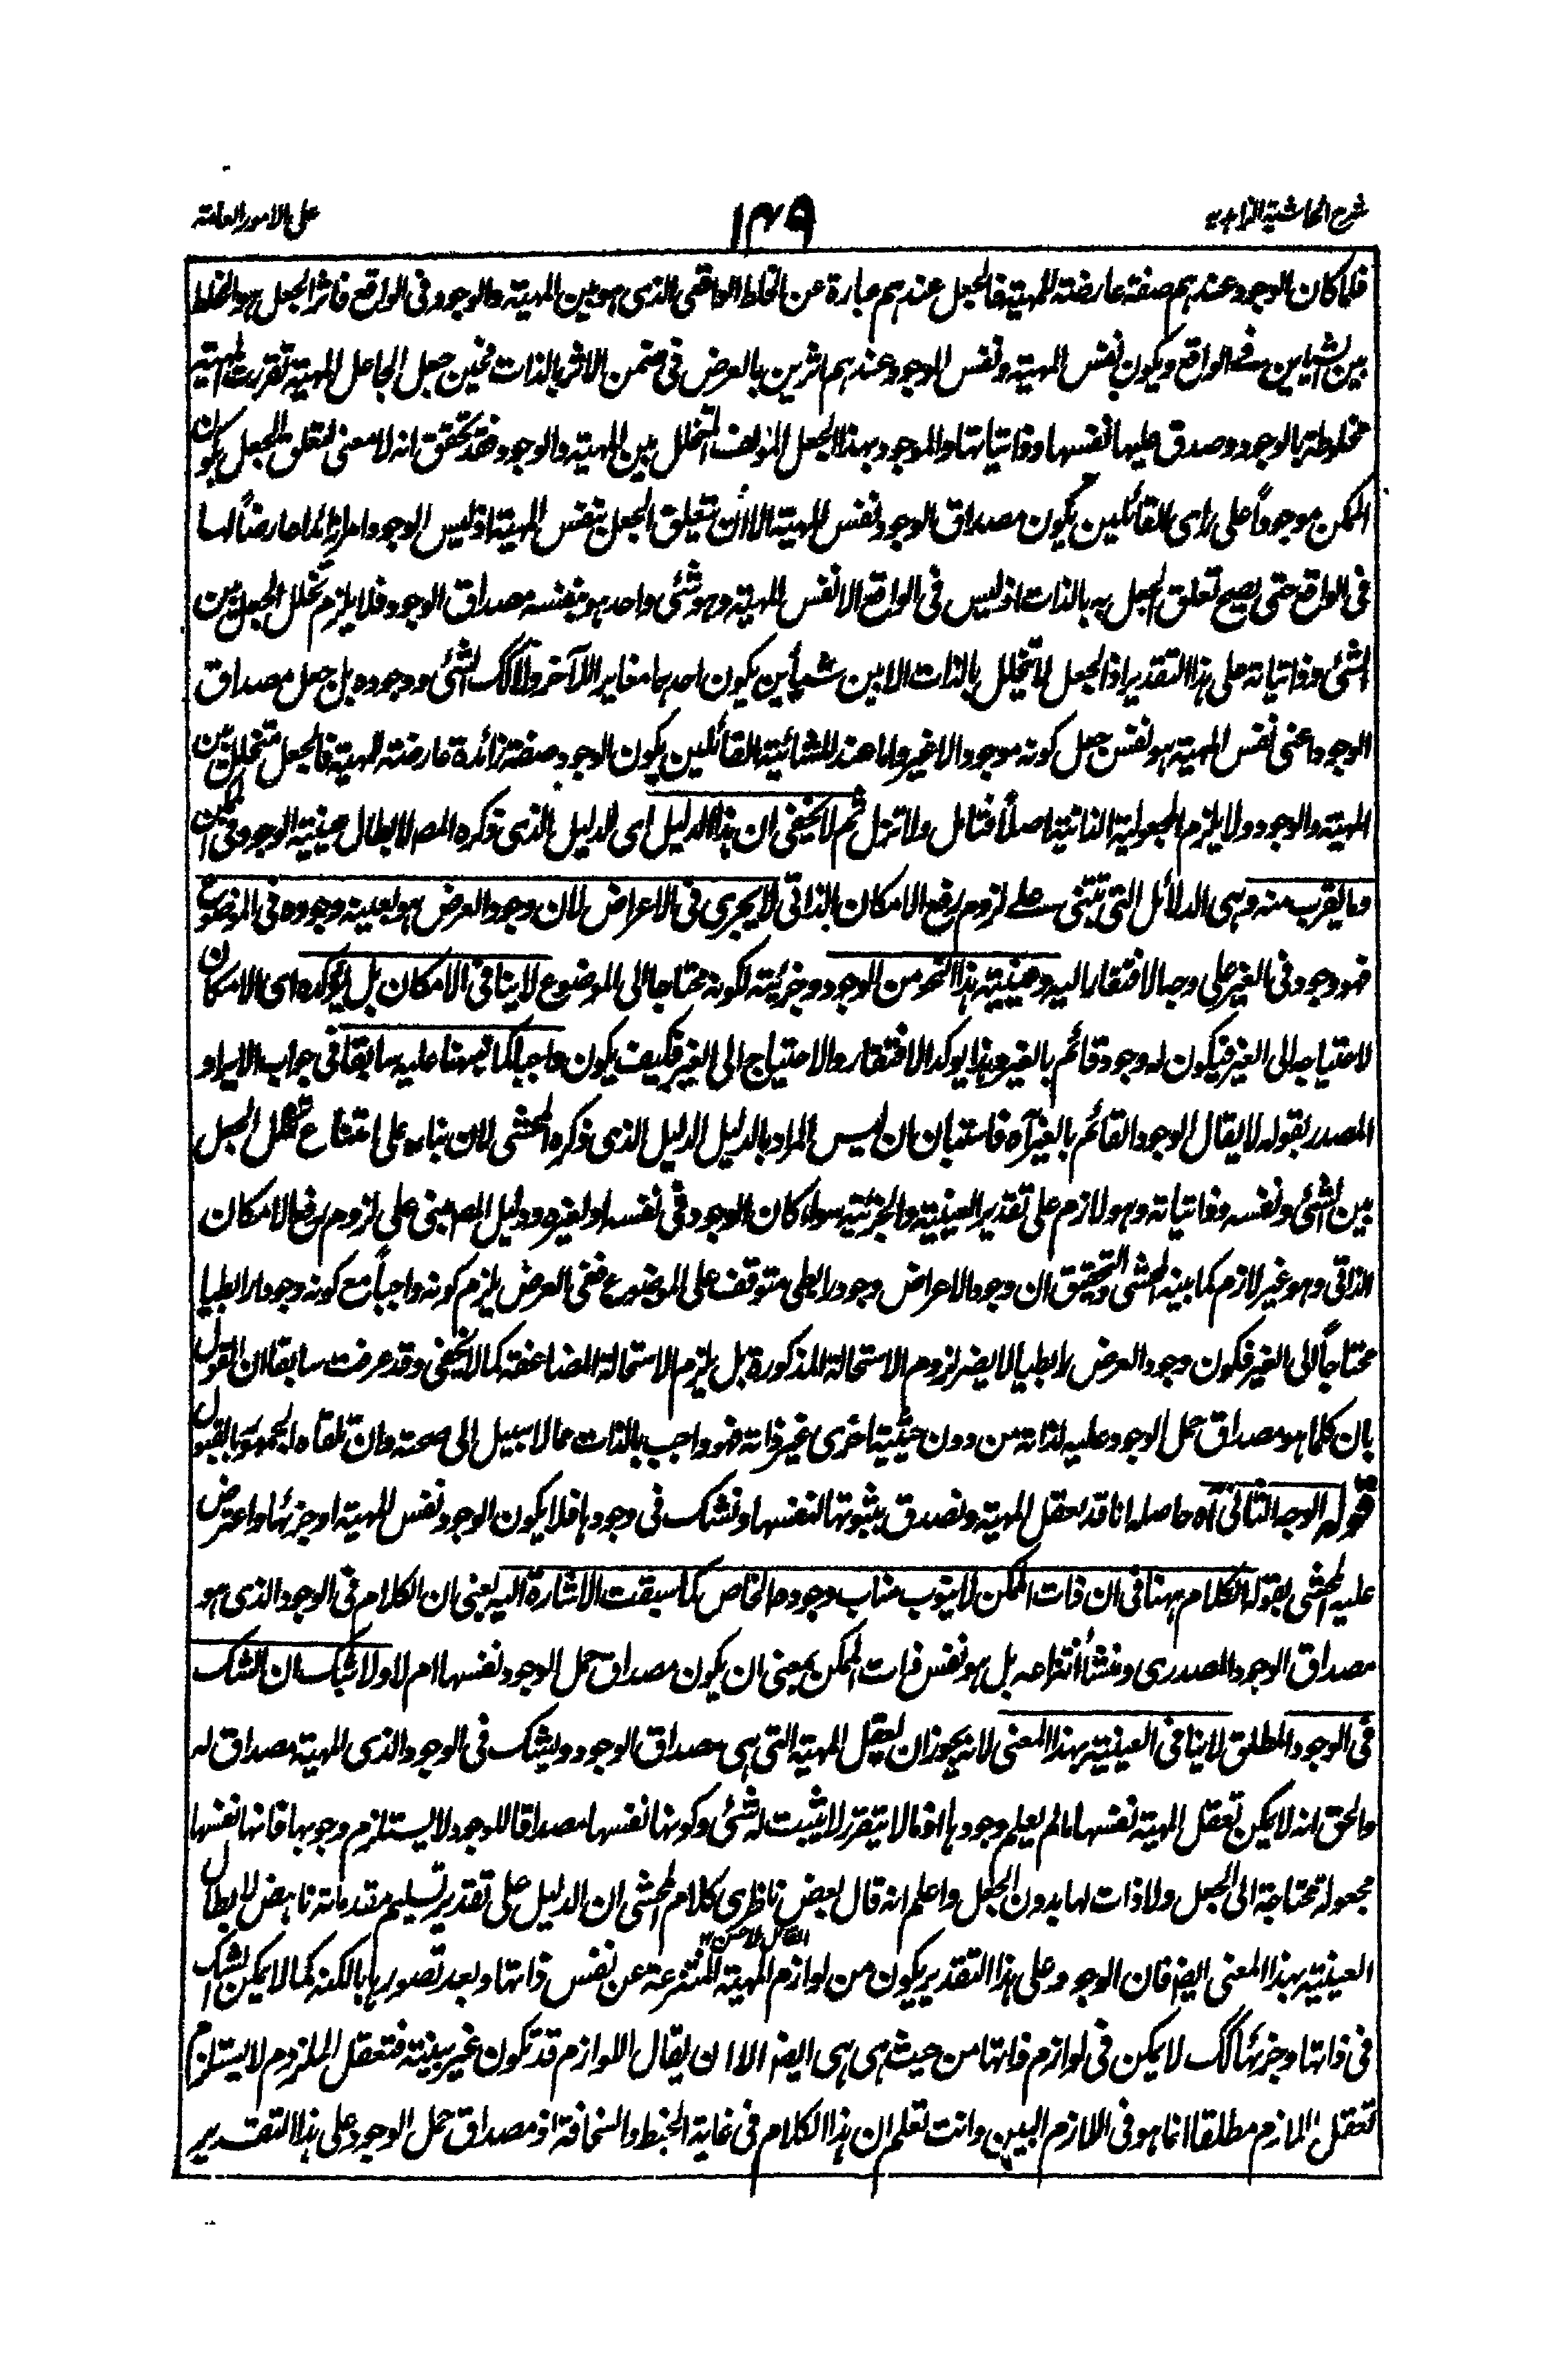 شرح الحاشية الزاهدية
١٣٩
على الامور العامة
فلما كان الوجود عندهم صفة عارضة للمهية فالجعل عندهم عبارة عن الخلط الواقعى الذى هو بين المهية والوجود فى الواقع فاثر الجعل هو الخلط
بين الشيأين فى الواقع ويكون نفس المهية ونفس الوجود عندهم اثرين بالعرض فى ضمن الاثر بالذات فحين جعل الجاعل المهية تقررت المهية
مخلوطة بالوجود وصدق عليها نفسها وذاتياتها والموجود بهذا الجعل المؤلف المتخلل بين المهية والوجود فقد تحقق انه لا معنى لتعلق الجعل بكون
الممكن موجوداً على راى القائلين بكون مصداق الوجود نفس المهية الا ان يتعلق الجعل بنفس المهية اذ ليس الوجود امرا زائدا عارضاً لها
فى الواقع حتى يصح تعلق الجعل به بالذات اذ ليس فى الواقع الا نفس المهية وهو شئ واحد هو بنفسه مصداق الوجود فلا يلزم تخلل الجعل بين
الشئ وذاتياته على هذا التقدير اذ الجعل لا يتخلل بالذات الا بين شيأين يكون احدهما مغاير اللآخر ولا كك الشئ ووجوده بل جعل مصداق
الوجود اعنى نفس المهية هو نفس جعل كونه موجودا لا غير واما عند المشائية القائلين بكون الوجود صفة زائدة عارضة للمهية فالجعل متخلل بين
المهية والوجود ولا يلزم المجعولية الذاتية اصلاً فتامل ولا تزل ثم لا يخفى ان هذا الدليل اى الدليل الذى ذكره المص لابطال عينية الوجود فى الممكن
وما يقرب منه وهى الدلائل التى تبتنى على لزوم رفع الامكان الذاتى لا يجرى فى الاعراض لان وجود العرض هو بعينه وجوده فى الموضوع
فهو وجود فى الغير على وجه الافتقار اليه وعينية هذا النحو من الوجود وجزئيته لكونه محتاجا الى الموضوع لا ينافى الامكان بل يؤكده اى الامكان
لاحتياجه الى الغير فيكون له وجود قائم بالغير وهذا يوكد الافتقار والاحتياج الى الغير فكيف يكون واجبا كما نبهنا عليه سابقا فى جواب الايراد
المصدر بقوله لا يقال الوجود القائم بالغير آه فاستبان ان ليس المراد بالدليل الدليل الذى ذكره المحشى لان بناءه على امتناع تخلل الجعل
بين الشئ ونفسه وذاتياته وهو لازم على تقدير العينية والجزئية سواء كان الوجود فى نفسه او لغيره ودليل المص مبنى على لزوم رفع الامكان
الذاتى وهو غير لازم كما بينه المحشى والتحقيق ان وجود الاعراض وجود رابطى متوقف على الموضوع ففى العرض يلزم كونه واجباً مع كونه وجودا رابطيا
محتاجاً الى الغير فكون وجود العرض رابطيا لا يضر لزوم الاستحالة المذكورة بل يلزم الاستحالة المضاعفة كما لا يخفى وقد عرفت سابقا ان القول
بان كلما هو مصداق حمل الوجود عليه لذاته من دون حيثية اخرى غير ذاته فهو واجب بالذات مما لا سبيل الى صحته وان تلقاه الجمهور بالقبول
قوله الوجه الثانى آه حاصله انا قد نعقل المهية ونصدق بثبوتها لنفسها ونشك فى وجودها فلا يكون الوجود نفس المهية او جزئها واعترض
عليه المحشى بقوله الكلام ههنا فى ان ذات الممكن لا ينوب مناب وجوده الخاص كما سبقت الاشارة اليه يعنى ان الكلام فى الوجود الذى هو
مصداق الوجود المصدرى ومنشأ انتزاعه بل هو نفس ذات الممكن بمعنى ان يكون مصداق حمل الوجود نفسها ام لا ولا شك ان الشك
فى الوجود المطلق لا ينافى العينية بهذا المعنى لانه يجوز ان يعقل المهية التى هى مصداق الوجود ويشك فى الوجود الذى المهية مصداق له
والحق انه لا يمكن تعقل المهية نفسها ما لم يعلم وجودها اذ ما لا يتقرر لا يثبت له شئ وكونها نفسها مصداقا للوجود لا يستلزم وجوبها فانها نفسها
مجعولة محتاجة الى الجعل ولا ذات لها بدون الجعل واعلم انه قال بعض ناظرى كلام المحشى ان الدليل على تقدير تسليم مقدماته ناهض لابطال
العينية بهذا المعنى ايضا فان الوجود على هذا التقدير يكون من لوازم المهية المنتزعة عن نفس ذاتها وبعد تصورها بالكنه كما لا يمكن الشك
فى ذاتها وجزئها كك لا يمكن فى لوازم ذاتها من حيث هى هى ايضا الا ان يقال اللوازم قد تكون غير بينة فتعقل الملزوم لا يستلزم
تعقل اللازم مطلقا انما هو فى اللازم البين وانت تعلم ان هذا الكلام فى غاية الخبط والسخافة اذ مصداق حمل الوجود على هذا التقدير